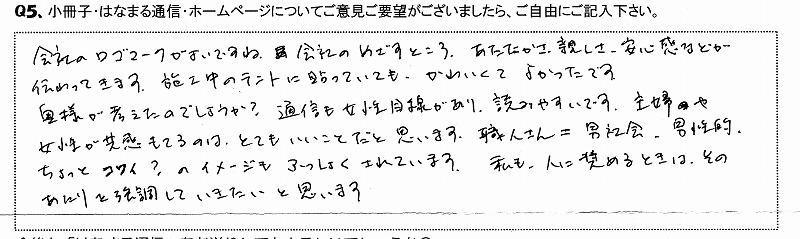 Q5、小冊子・はなまる通信・ホームページについてご意見ご要望がございましたら、ご自由にご記入下さい。
会社のロゴマークがよいですね。会社のめざすところ、あたたかさ、親しさ、安心感などが
伝わってきます。施工中のテントに貼っていても、かわいくてよかったです
奥様が考えたのでしょうか？通信も女性目線があり、読みやすいです。主婦や
女性が共感もてるのは、とてもいいことだと思います。職人さん＝男社会、男性的、
ちょっとコワイ？のイメージもふっしょくされています。私も、人に奨めるときは、その
あたりを強調していきたいと思います